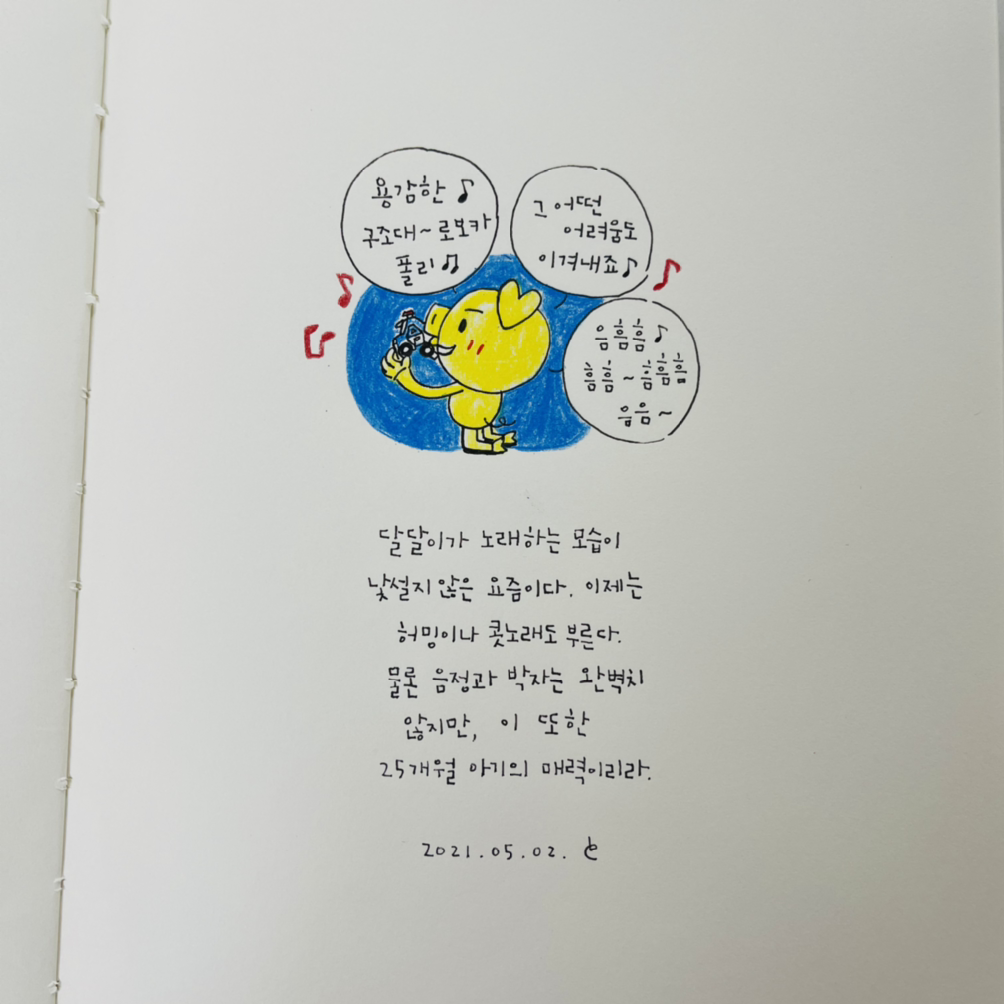 용감한 ♪
구조대~ 로보카
폴리 ♫
그 어떤
어려움도
이겨내죠 ♪
음흠흠 ♪
흠흠 ~ 흠흠흠
음음 ~
달달이가 노래하는 모습이
낯설지 않은 요즘이다. 이제는
허밍이나 콧노래도 부른다.
물론 음정과 박자는 완벽치
않지만, 이 또한
25개월 아기의 매력이리라.
2021.05.02.